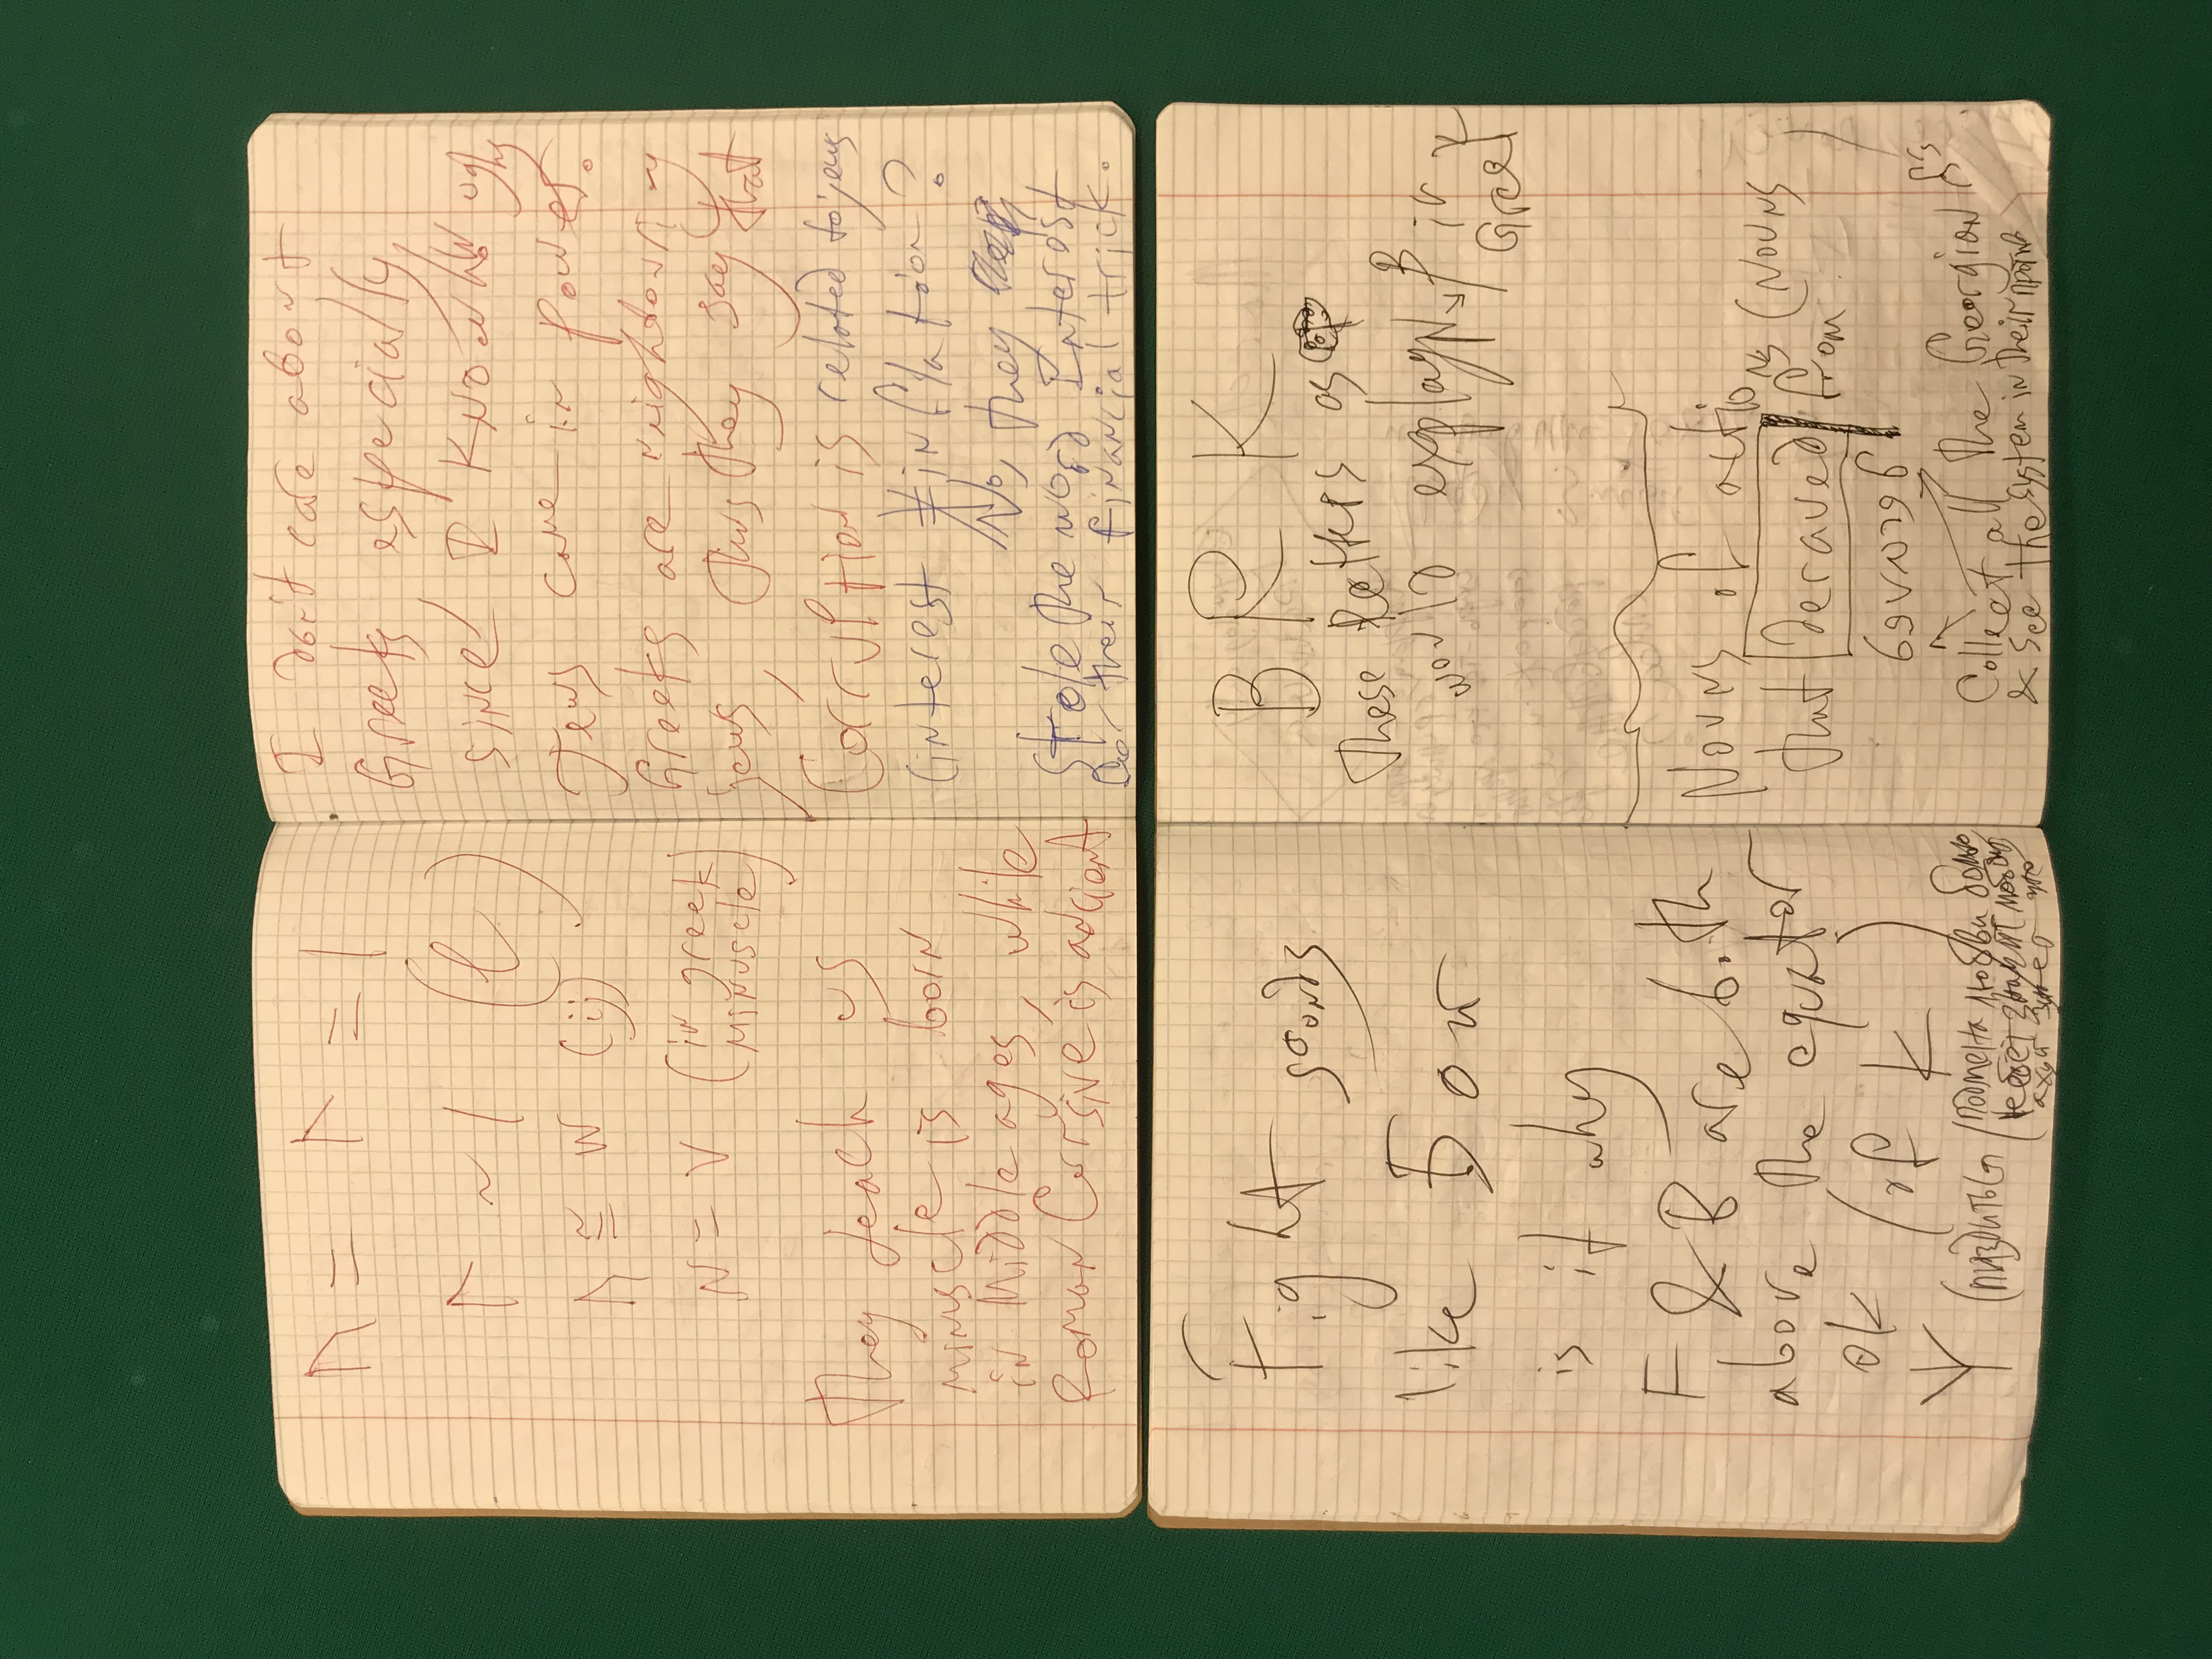 Λ = Λ = l
Λ ~ l (l)
Λ ≅ W (ij)
N = V (in greek
minuscle)
They teach us
minuscle is born
in Middle ages, while
Roman Cursive is ancient
I don't care about
Greeks especially,
since I know how ugly
Jews came in power.
Greeks are neighbouring
jews, Thus, they say that
Corruption is related to jews
(interest ≠ inflation?
No, they
Stole the word Interest
for their financial trick.
Fight sounds
like Бои
is it why
F & B are both
above the equator
ok (of K)
Ψ (пиздиться /
B R K
These letters as
would explayn β in
Greek
Nouns of actions (Nouns
that deraved from
Collect all the Georgian
& see the system in their против